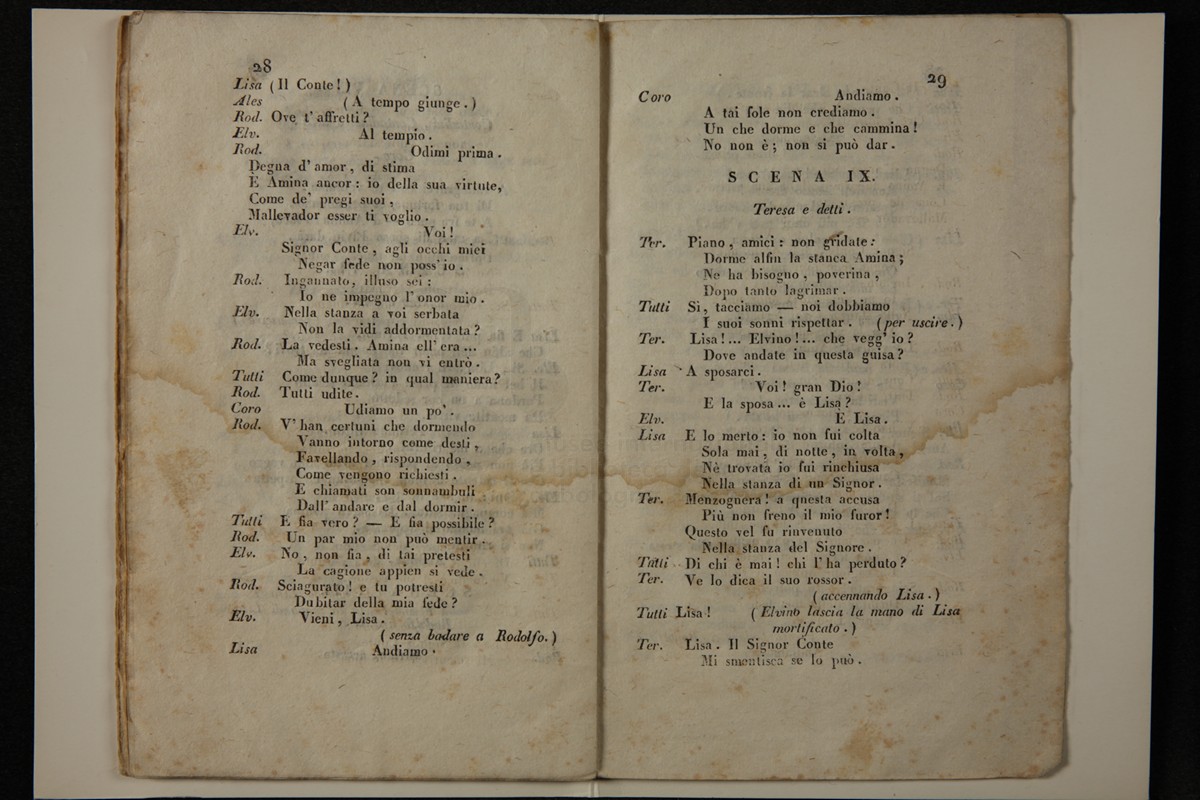 28
Lisa ( Il Conte ! )
Ales ( A tempo giunge . )
Rod. Ove t' affretti ?
Elv. Al tempio .
Rod. Odimi prima .
Degna d' amor , di stima
E Amina ancor : io della sua virtute,
Come de' pregi suoi ,
Mallevador esser ti voglio .
Elv. Voi !
Signor Conte , agli occhi miei
Negar fede non poss' io .
Rod. Ingannato, illuso sei :
Io ne impegno l' onor mio .
Elv. Nella stanza a voi serbata
Non la vidi addormentata ?
Rod. La vedesti . Amina ell' era ...
Ma svegliata non vi entrò .
Tutti Come dunque ? in qual maniera ?
Rod. Tutti udite .
Coro Udiamo un po' .
Rod. V' han certuni che dormendo
Vanno intorno come desti ,
Favellando , rispondendo ,
Come vengono richiesti .
E chiamati son sonnambuli
Dall' andare e dal dormir .
Tutti E fia vero ? — E fia possibile ?
Rod. Un par mio non può mentir .
Elv. No , non fia , di tai pretesti
La cagione appien si vede .
Rod. Sciagurato ! e tu potresti
Dubitar della mia fede ?
Elv. Vieni , Lisa .
( senza badare a Rodolfo. )
Lisa Andiamo .
29
Coro Andiamo .
A tai fole non crediamo .
Un che dorme e che cammina !
No non è ; non si può dar .
SCENA IX.
Teresa e detti .
Ter. Piano , amici : non gridate :
Dorme alfin la stanca Amina ;
Ne ha bisogno , poverina ,
Dopo tanto lagrimar .
Tutti Si, tacciamo — noi dobbiamo
I suoi sonni rispettar . (per uscire. )
Ter. Lisa !... Elvino !... che vegg' io ?
Dove andate in questa guisa ?
Lisa A sposarci .
Ter. Voi ! gran Dio !
E la sposa ... è Lisa ?
Elv. E Lisa .
Lisa E lo merto : io non fui colta
Sola mai , di notte , in volta ,
Nè trovata io fui rinchiusa
Nella stanza di un Signor .
Ter. Menzognera ! a questa accusa
Più non freno il mio furor !
Questo vel fu rinvenuto
Nella stanza del Signore .
Tutti Di chi è mai ! chi l' ha perduto ?
Ter. Ve lo dica il suo rossor .
( accennando Lisa . )
Tutti Lisa ! ( Elvino lascia la mano di Lisa
mortificato . )
Ter. Lisa . Il Signor Conte
Mi smentisca se lo può .